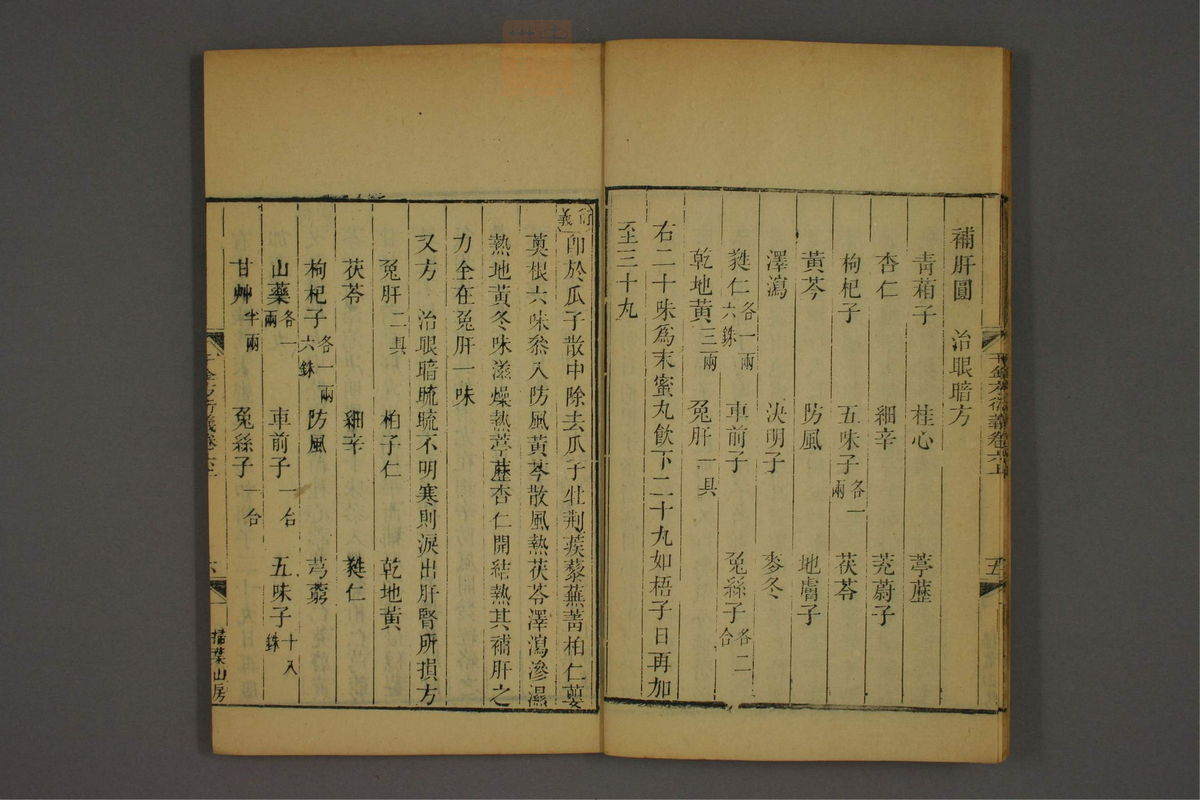 補肝圓　治眼暗方
青葙子　桂心　葶藶
杏仁　細辛　茺蔚子
枸杞子　五味子各一兩　茯苓
黃芩　防風　地膚子
澤瀉　決明子　麥冬
蕤仁各一兩六銖　車前子　兔絲子各二合
乾地黃三兩　兔肝一具
右二十味爲末蜜丸飲下二十丸如梧子日再加
至三十丸
千金方衍義卷六上　五
衍義　即於瓜子散中除去瓜子牡荆蒺藜蕪菁柏仁蔓
荑根六味叅入防風黃芩散風熱茯苓澤瀉滲濕
熱地黃冬味滋燥熱葶藶杏仁開結熱其補肝之
力全在兔肝一味
又方　治眼暗䀮䀮不明寒則淚出肝腎所損方
兔肝二具　柏子仁　乾地黃
茯苓　細辛　蕤仁
枸杞子各一兩六銖　防風　芎藭
山藥各一兩　車前子一合　五味子十八銖
甘艸半兩　兔絲子一合
千金方衍義卷六上　六　掃葉山房